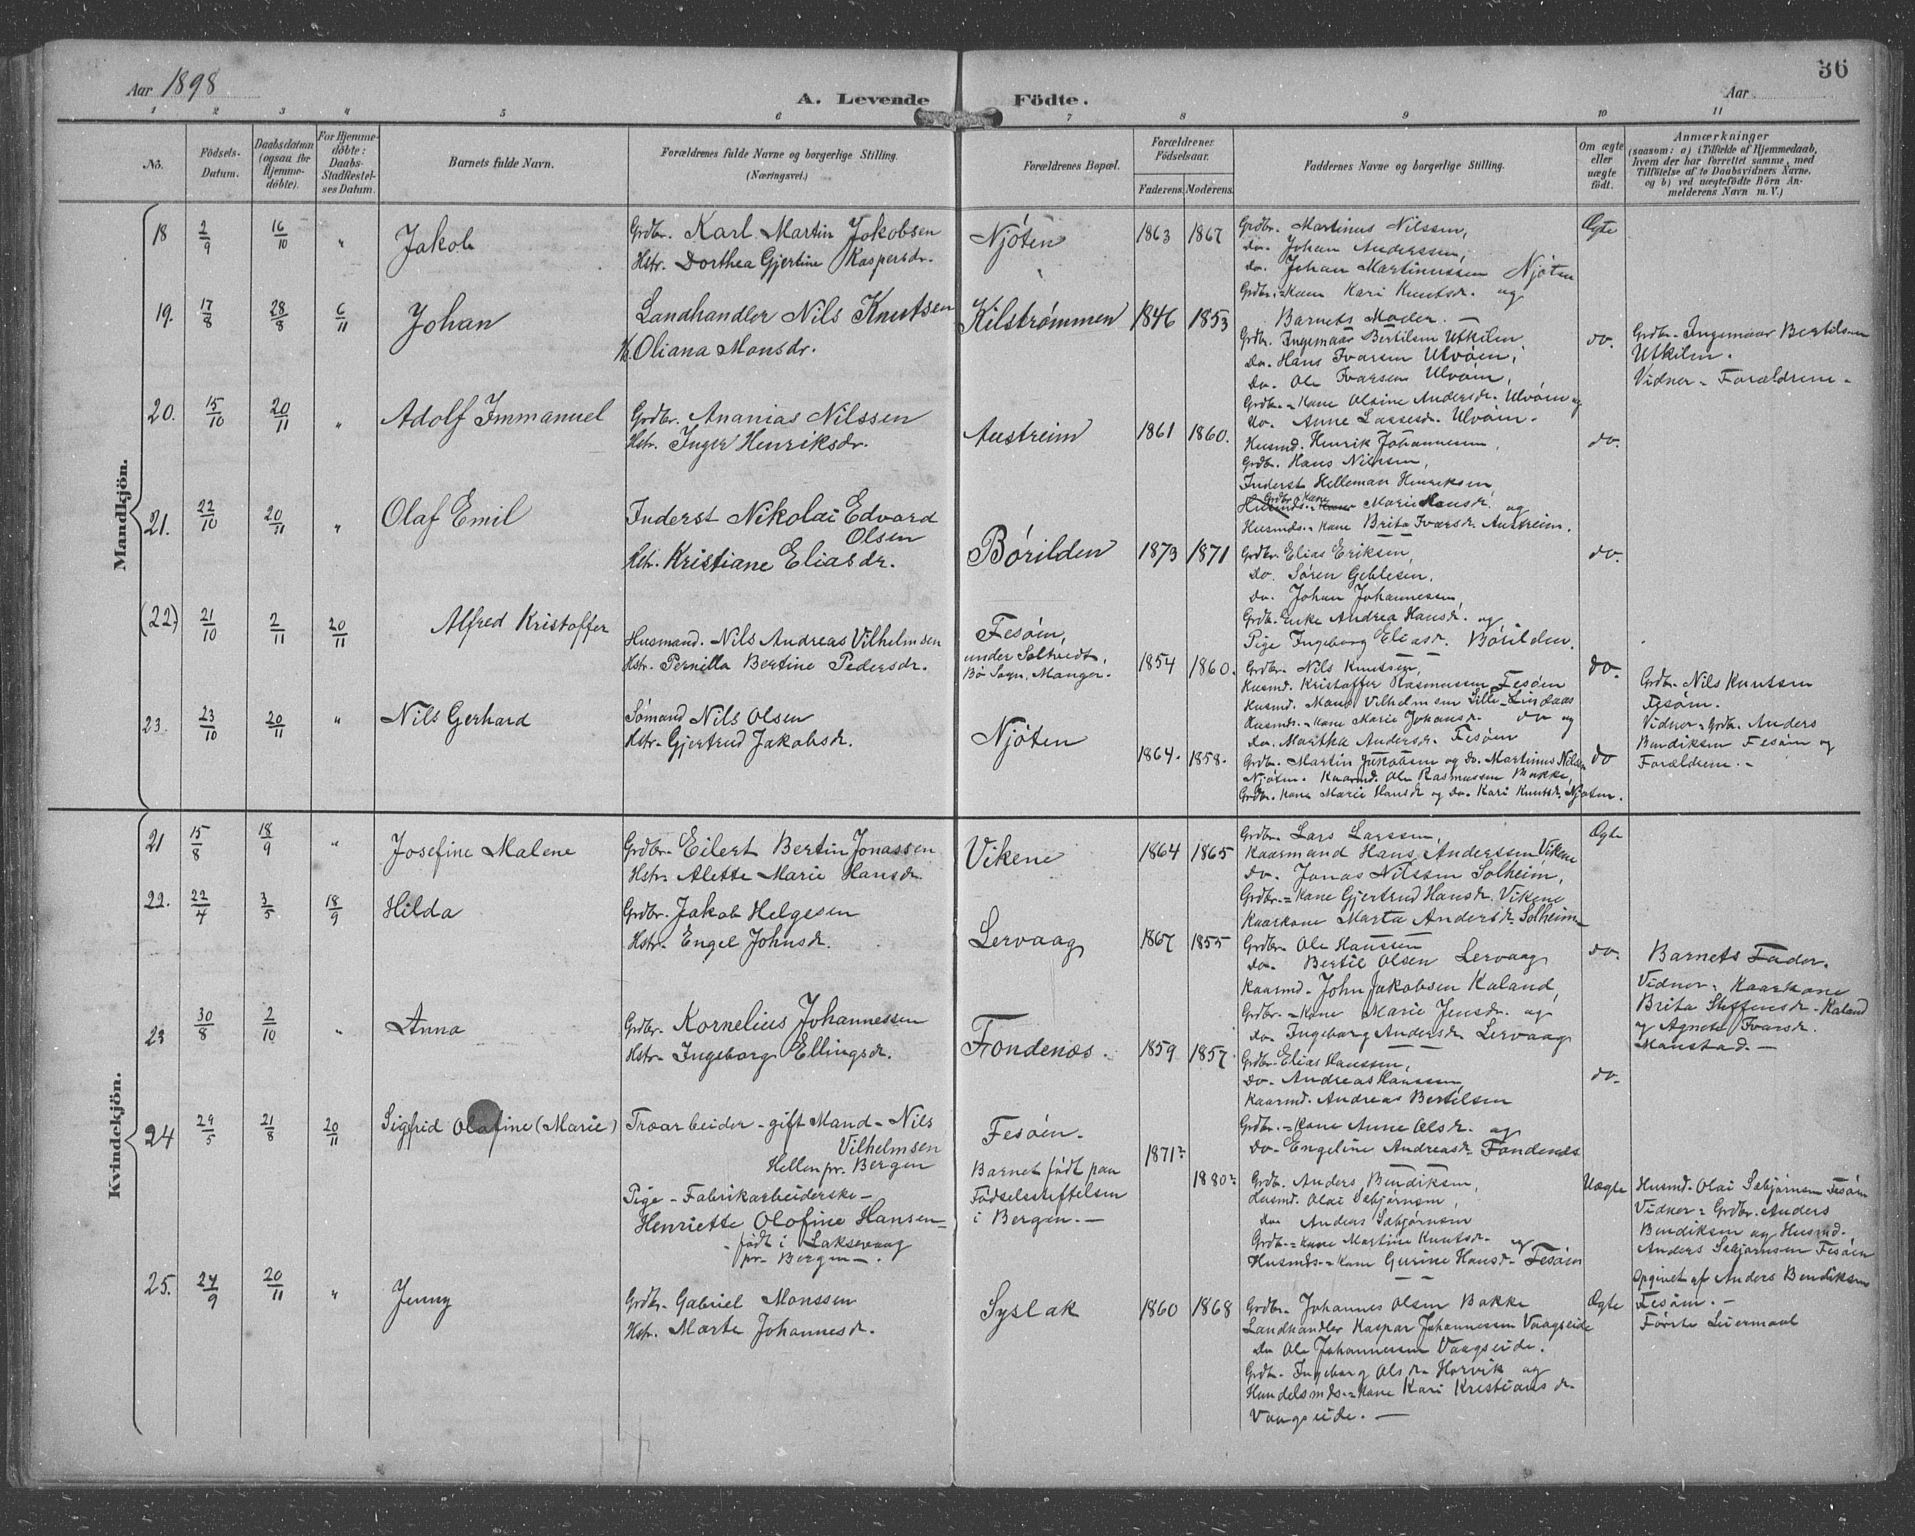 Aar 1898
A. Levende Födte.
36
Aar
1 2 3 4 5 6 7 8 9 10 11
No.
Födsels-Datum.
Daabsdatum (ogsaa for Hjemme-döbte).
For Hjemme-döbte: Daabs-Stadfæstel-ses Datum.
Barnets fulde Navn.
Forældrenes fulde Navne og borgerlige Stilling.
(Næringsvei.)
Forældrenes Bopæl.
Forældrenes Födselsaar.
Faderens. Moderens.
Faddernes Navne og borgerlige Stilling.
Om ægte eller uægte födt.
Anmærkninger
(saasom: a) i Tilfælde af Hjemmedaab, hvem der har forrettet samme, med Tilföielse af to Daabsvidners Navne, og b) ved uægtefödte Börn An-melderens Navn m. V.)
Mandkjön.
18 2/9 16/10 "
Jakob
Grdbr. Karl Martin Jakobsen
Hstr. Dorthea Gjertine Kaspersdr.
Njöten
1863 1867
Grdbr. Martinus Nilssen,
do. Johan Anderssen,
do. Johan Martinussen Njöten
Grdbr.=Kone Kari Knutsdr. og
Barnets Moder. —
Ægte
19. 17/8 28/8 6/11
Johan
Landhandler Nils Knutsen
H. Oliana Monsdr.
Kilströmmen
1846 1853
Grdbr. Ingemaar Bertilsen Utkilen
do. Hans Ivarsen Ulvöen,
do. Ole Ivarsen Ulvöen,
Grdbr.=Kone Olsine Andersdr. Ulvöen og
do. Anne Lassesdr. Ulvöen.
do.
Grdbr. Ingemaar Bertilsen
Utkilen.
Vidner = Forældrene.
20. 15/10 20/11 "
Adolf Immanuel
Grdbr. Ananias Nilssen
Hstr. Inger Henriksdr.
Austreim
1861 1860.
Husmd. Henrik Johannessen,
Grdbr. Hans Nilssen,
Inderst Helleman Henriksen
Grdbr. Kone
Husmds.=Kone Marie Hansdr. og
Husmds.=Kone Brita Ivarsdr. Austreim.
do.
21. 22/10 20/11 "
Olaf Emil
Inderst Nikolai Edvard
Olsen
Hstr. Kristiane Eliasdr.
Börilden
1873 1871
Grdbr. Elias Eriksen,
do. Sören Geblesen,
do. Johan Johannessen,
Grdbr. Enke Andrea Hansdr. og
Pige Ingeborg Eliasdr. Börilden.
do.
(22) 21/10 2/11 20/11
Alfred Kristoffer
Husmand. Nils Andreas Vilhelmsen
Hstr. Pernilla Bertine Pedersdr.
Fesöen,
under Soltvedt,
Bö Sogn, Manger.
1854 1860.
Grdbr. Nils Knutsen,
Husmd. Kristoffer Rasmussen Fesöen
Husmd. Mons Vilhelmsen Lille-Lindaas
Husmds.=Kone Marie Johansdr. do og
do. Martha Andersdr. Fesöen
do.
Grdbr. Nils Knutsen
Fesöen.
Vidner = Grdbr. Anders
Bendiksen Fesöen og
Forældrene. —
23. 23/10 20/11 "
Nils Gerhard
Sömand Nils Olsen
Hstr. Gjertrud Jakobsdr.
Njöten
1864. 1858.
Grdbr. Martin Jakobsen og do. Martinus Nilssen
Njöten. Kaarmd. Ole Rasmussen Bakke,
Grdbr. Kone Marie Hansdr og do. Kari Knutsdr. Njöten.
do
Kvindekjön.
21 15/8 18/9 "
Josefine Malene
Grdbr. Eilert Bertin Jonassen
Hstr. Alette Marie Hansdr.
Vikene
1864 1865
Grdbr. Lars Larssen,
Kaarmand Hans Anderssen Vikene
do. Jonas Nilssen Solheim,
Grdbr.=Kone Gjertrud Hansdr. Vikene
Kaarkone Marta Andersdr. Solheim
Ægte
22. 22/4 3/5 18/9
Hilda
Grdbr. Jakob Helgesen
Hstr. Engel Johnsdr.
Lervaag
1867 1855
Grdbr. Ole Hanssen
do. Bertil Olsen Lervaag
Kaarmd. John Jakobsen Kaland,
Grdbr.=Kone Marie Jensdr. og
do. Ingeborg Andersdr. Lervaag
do.
Barnets Fader.
Vidner = Kaarkone
Brita Steffensdr. Kaland
og Agnete Ivarsdr.
Monstad. —
23 30/8 2/10 "
Anna
Grdbr. Kornelius Johannessen
Hstr. Ingeborg Ellingsdr.
Fondenæs.
1859 1857.
Grdbr. Elias Hanssen,
do. Andreas Hanssen,
Kaarmd. Andreas Bertilsen
Grdbr.=Kone Anne Olsdr. og
do. Engeline Andreasdr. Fondenæs
do.
24 29/5 21/8 20/11
Sigfrid Olofine (Marie)
Træarbeider - gift Mand - Nils
Vilhelmsen
Hellen pr. Bergen
Pige - Fabrikarbeiderske -
Henriette Olofine Hansen -
- födt i Laksevaag
pr. Bergen -.
Fesöen.
Barnet födt paa
Födselsstiftelsen
i Bergen. —
1871? 1880?
Grdbr. Anders Bendiksen,
Husmd. Olai Sæbjörnsen,
do Andeas Sæbjörnsen
Grdbr.=Kone Martine Knutsdr. og
Husmds.=Kone Gurine Hansdr. Fesöen
Uægte
Husmd. Olai Sæbjörnsen Fesöen
Vidner = Grdbr. Anders
Bendiksen og Husmd.
Anders Sæbjörnsen Fesöen
Opgivet af Anders Bendiksen
Fesöen. —
Förste Leiermaal
25. 24/9 20/11 "
Jenny
Grdbr. Gabriel Monssen
Hstr. Marte Johannesdr.
Syslak
1860 1868
Grdbr. Johannes Olsen Bakke
Landhandler Kaspar Johannessen Vaagseide
do Ole Johannessen Vaagseide.
Grdbr. Ingeborg Olsdr. Horvik og
Handelsmds.=Kone Kari Kristiansdr.
Vaagseide. —
Ægte